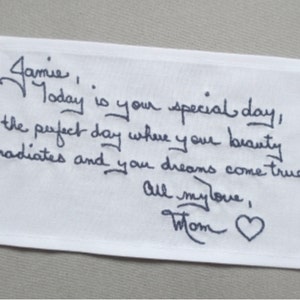 Jamie,
Today is your special day,
the perfect day where your beauty
radiates and your dreams come true
All my love,
Mom ♡